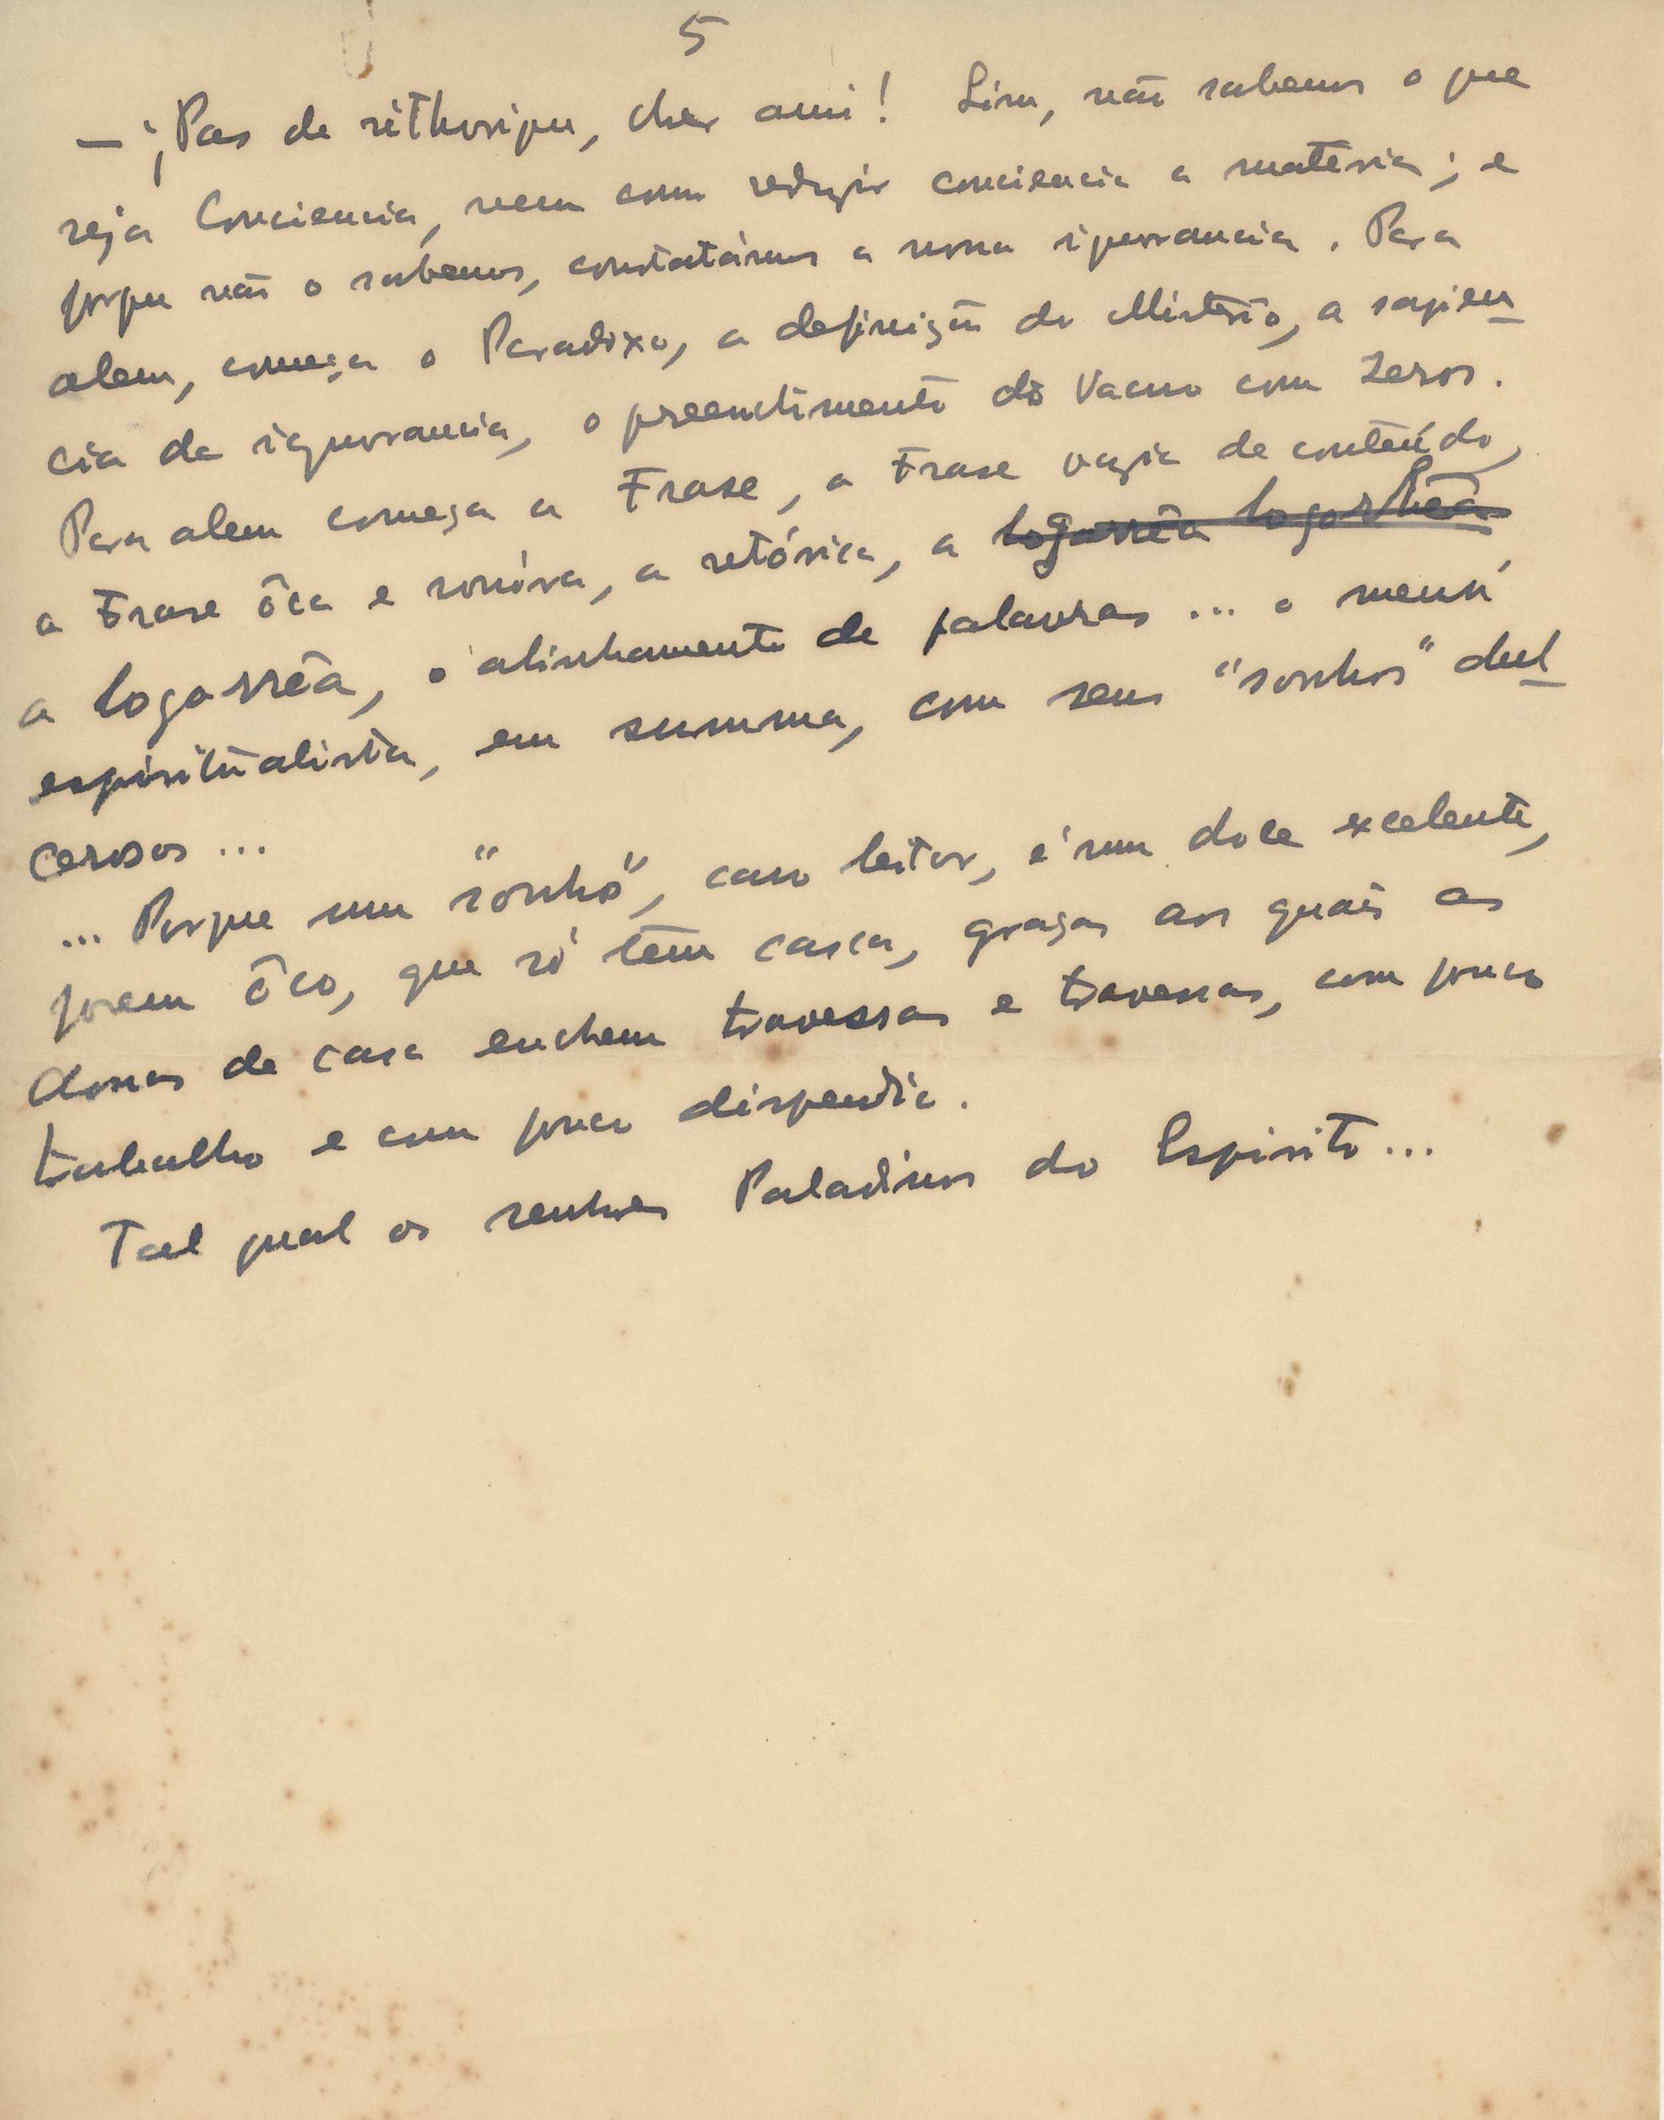 5
— ¡Pas de réthorique, cher ami! Sim, não sabemos o que
seja Conciencia, nem como reduzir conciencia a materia; e
porque não o sabemos, constatámos a nossa ignorancia. Para
alem, começa o Paradoxo, a definição do Mistério, a sapien
cia da ignorancia, o preenchimento do Vacuo com Zeros.
Para alem começa a Frase, a Frase vazia de conteúdo,
a Frase ôca e sonóra, a retórica, a logorrêa logorrhêa
a logorrêa, o alinhamento de palavras ... o menú
espiritualista, em summa, com seus "sonhos" dul
cerosos ...
... Porque um "sonho", caro leitor, é um doce excelente,
porem ôco, que só têm casca, graças aos quais as
donas de casa enchem travessas e travessas, com pouco
trabalho e com pouco dispendio.
Tal qual os senhores Paladinos do Espirito ...